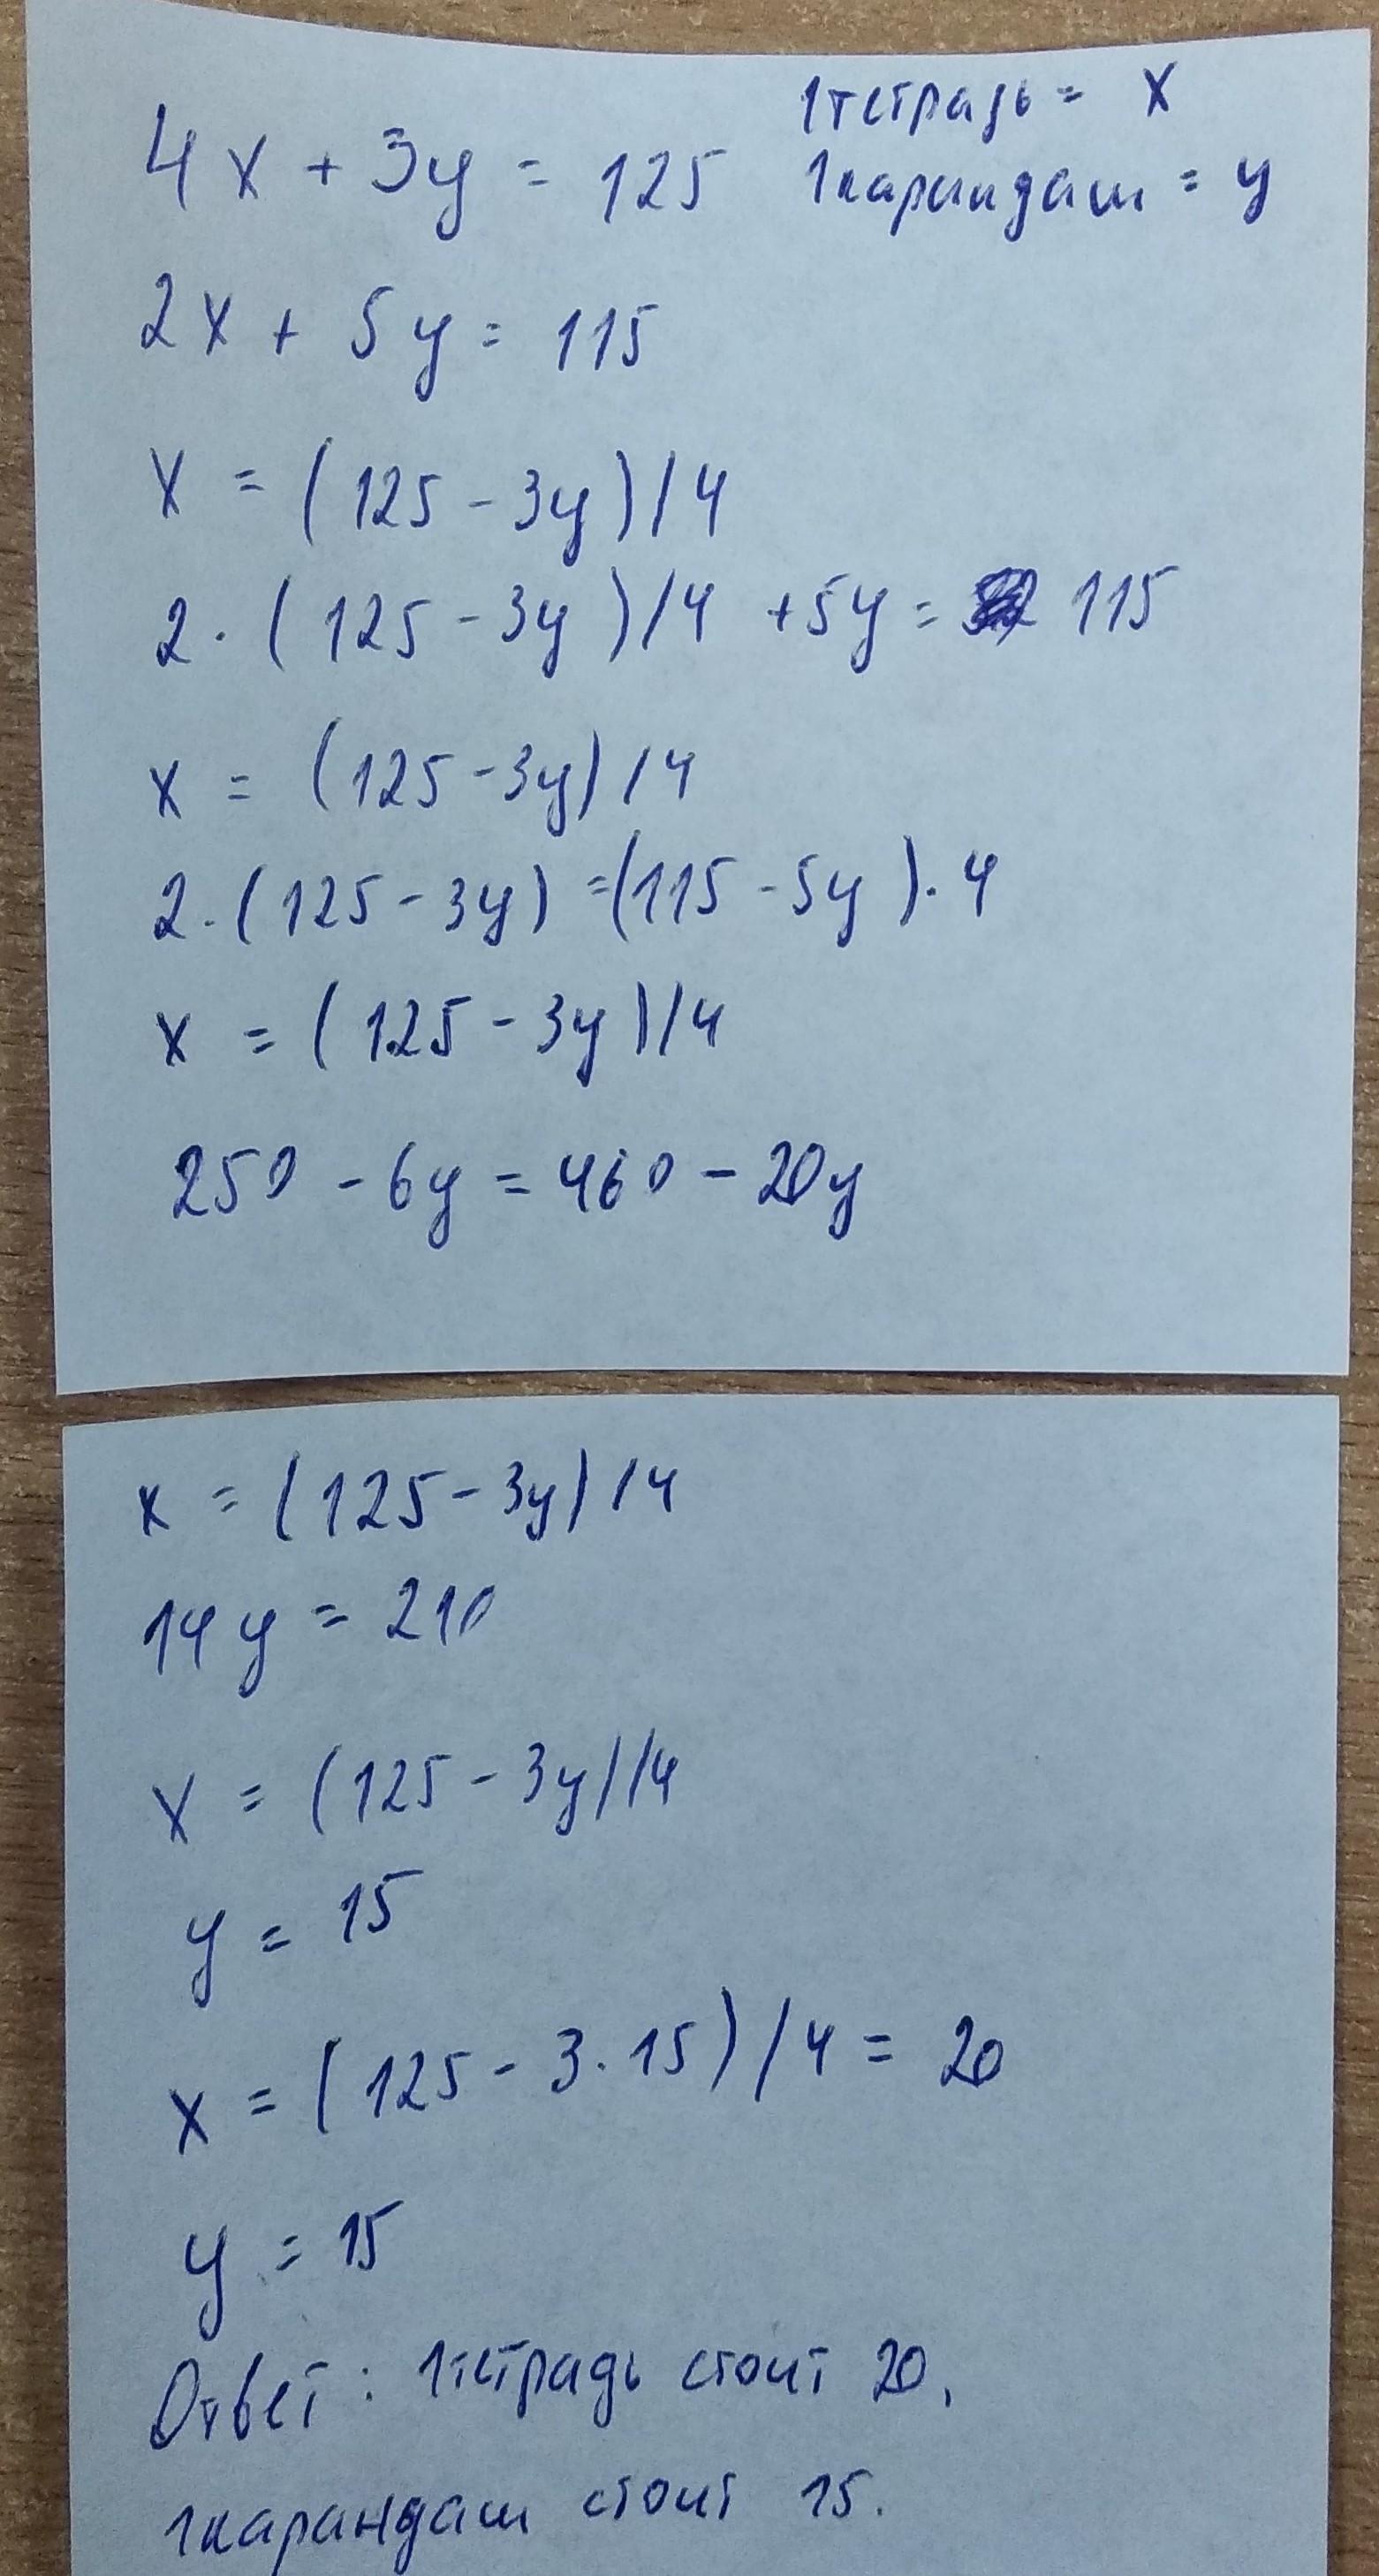 1тетрадь = x
4x + 3y = 125
1карандаш = y
2x + 5y = 115
x = (125 - 3y)/4
2 · (125 - 3y)/4 + 5y = 115
x = (125 - 3y)/4
2 · (125 - 3y) = (115 - 5y) · 4
x = (125 - 3y)/4
250 - 6y = 460 - 20y
x = (125 - 3y)/4
14y = 210
x = (125 - 3y)/4
y = 15
x = (125 - 3 · 15)/4 = 20
y = 15
Ответ: 1тетрадь стоит 20,
1карандаш стоит 15.